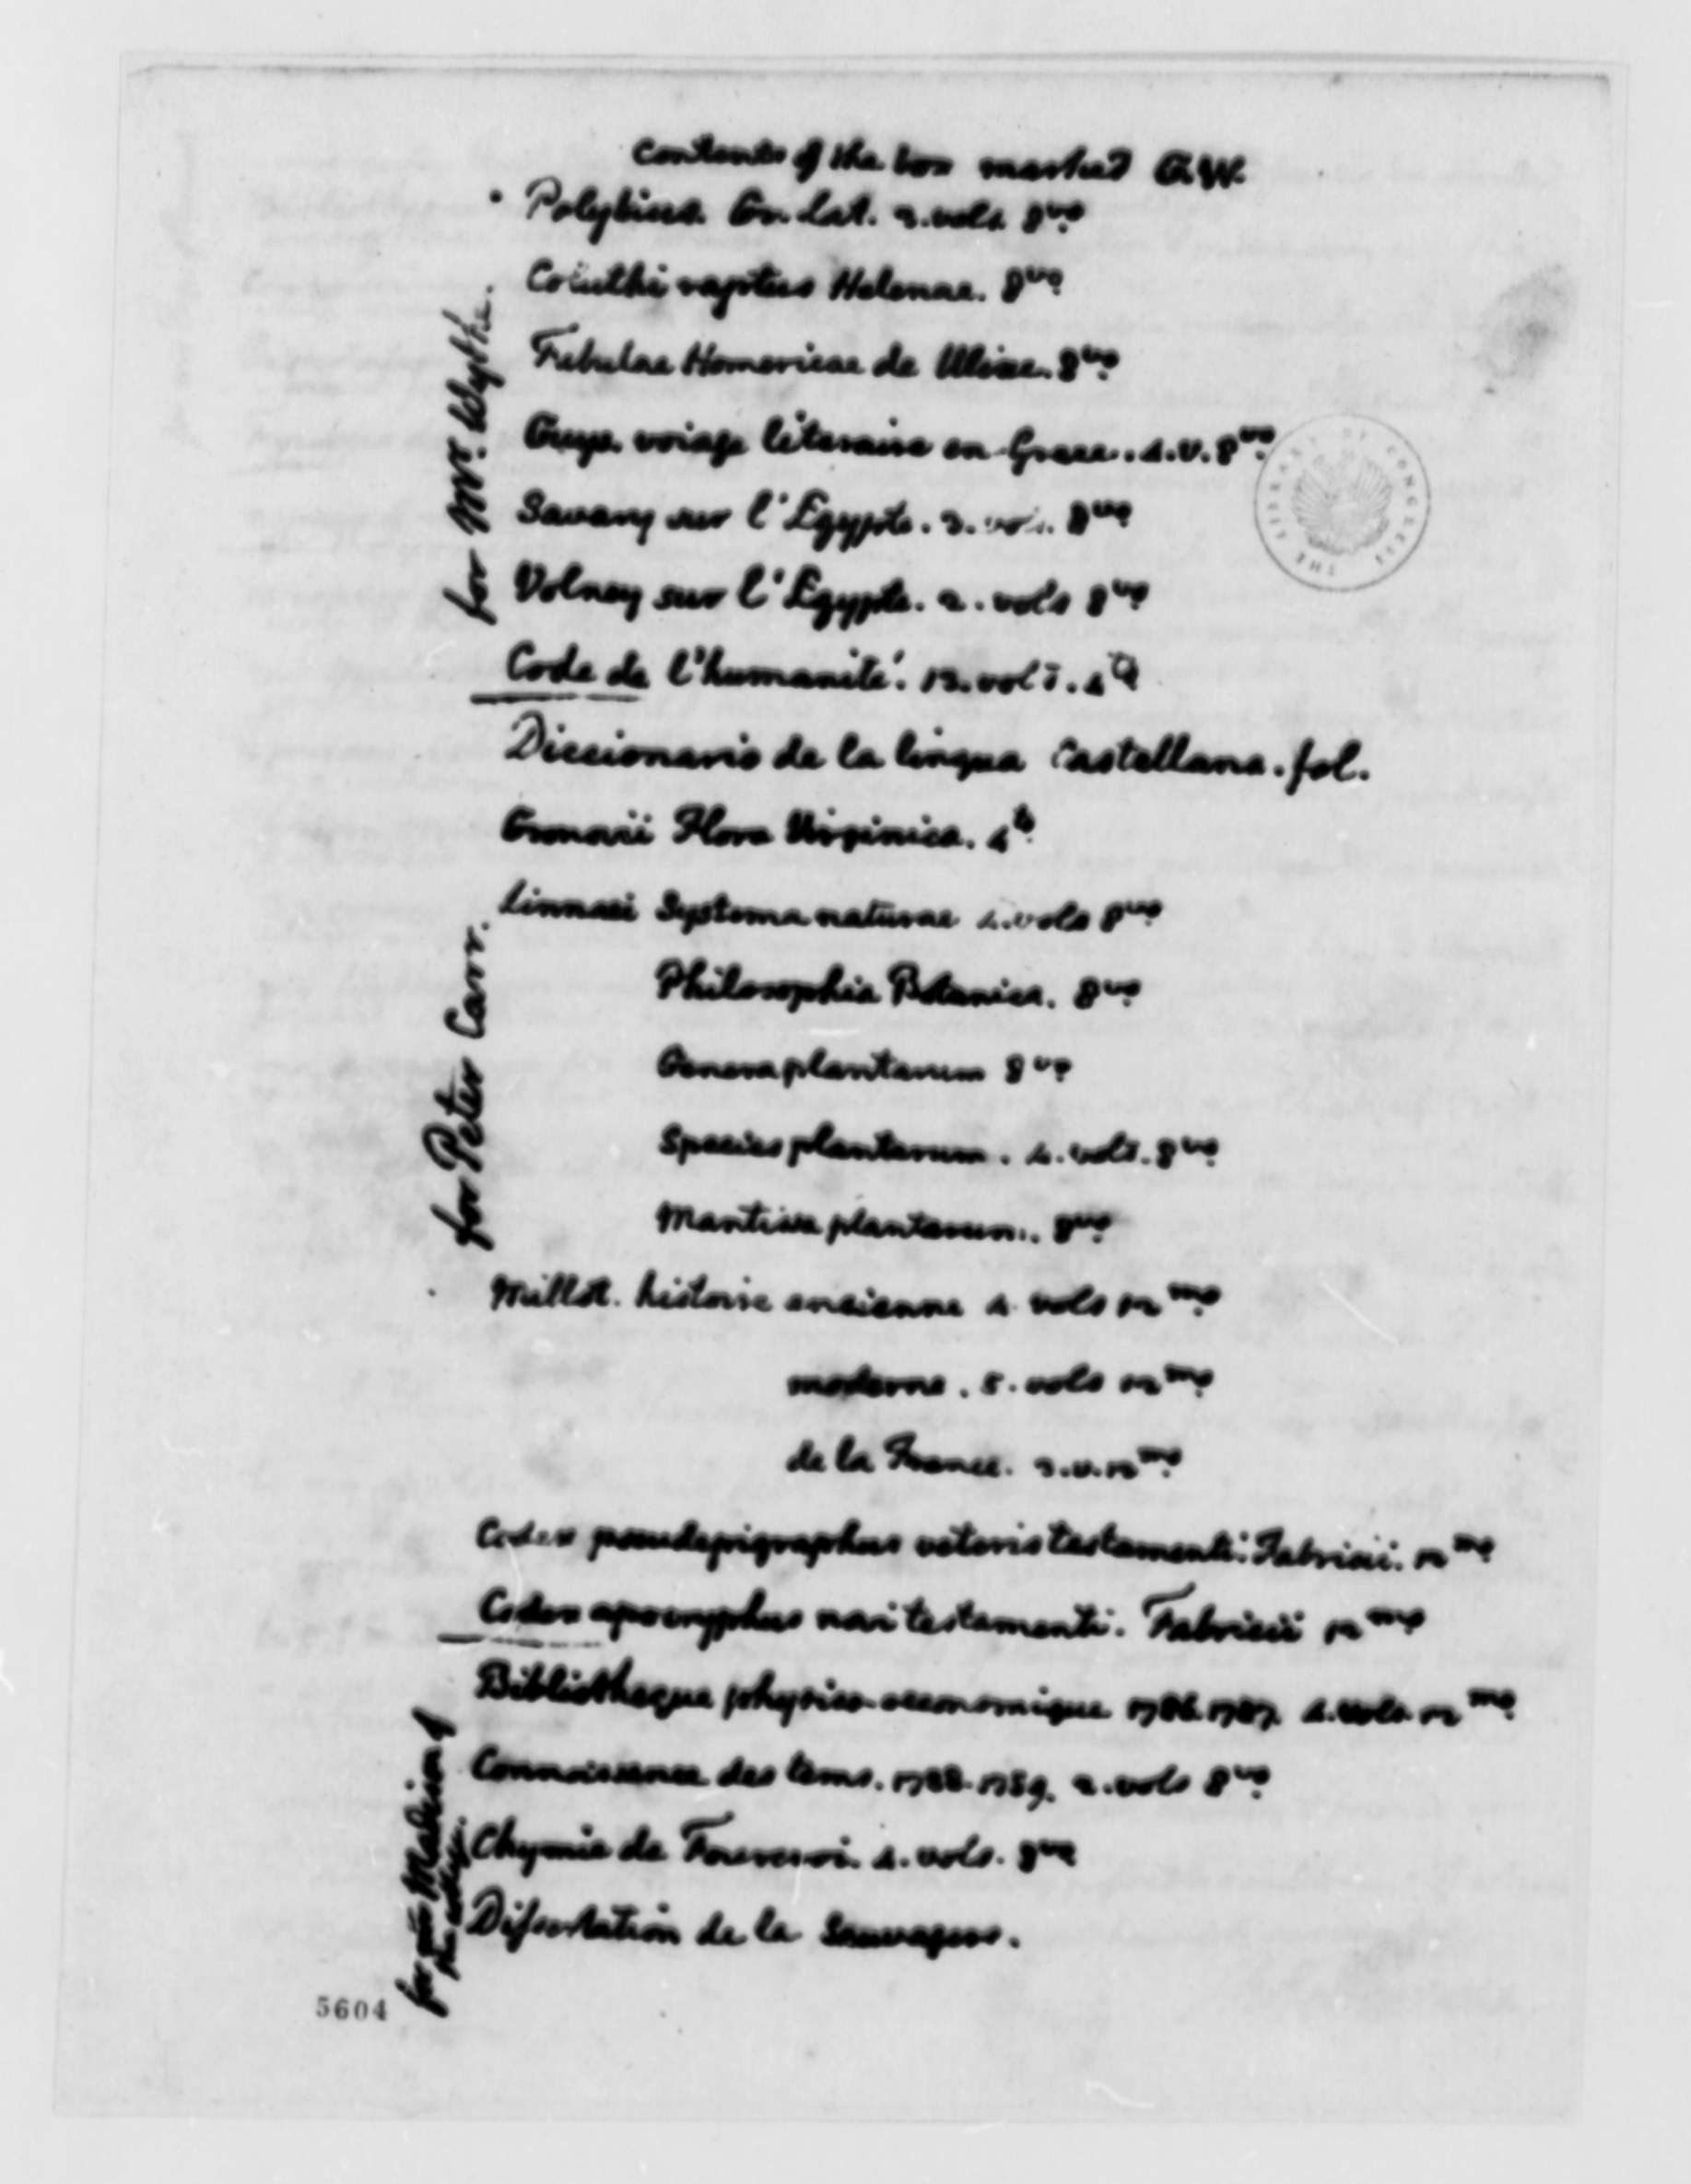 Contents of the box marked G.W.
Polybius. Gr. Lat. 3. vols. 8vo.
for Mr. Wythe.
Coluthi raptus Helenae. 8vo.
Fabulae Homericae de Ulixe. 8vo.
Guys. voiage literaire en Grece. 4. v. 8vo.
Savary sur l'Egypte. 3. vol. 8vo.
Volney sur l'Egypte. 2. vols 8vo.
Code de l'humanité. 13. vols. 4to
Diccionario de la lingua Castellana. fol.
Gronovii Flora Virginica. 4to.
for Peter Carr.
Linnaei Systema naturae 4. vols 8vo.
Philosophia Botanica. 8vo.
Genera plantarum 8vo.
Species plantarum. 4. vols. 8vo.
Mantissa plantarum. 8vo.
Millot. histoire ancienne 4. vols 12mo.
moderne. 5. vols 12mo.
de la France. 3. v. 12mo.
Codex pseudepigraphus veteris testamenti. Fabricii. 12mo.
Codex apocryphus novi testamenti. Fabricii 12mo.
for Madison of the college.
Bibliotheque physico-oeconomique 1786. 1787. 4. vols. 12mo.
Connoissance des tems. 1788. 1789. 2. vols 8vo.
Chymie de Fourcroi. 4. vols. 8vo
Dissertation de la Sauvagere.
5604
THE LIBRARY OF CONGRESS